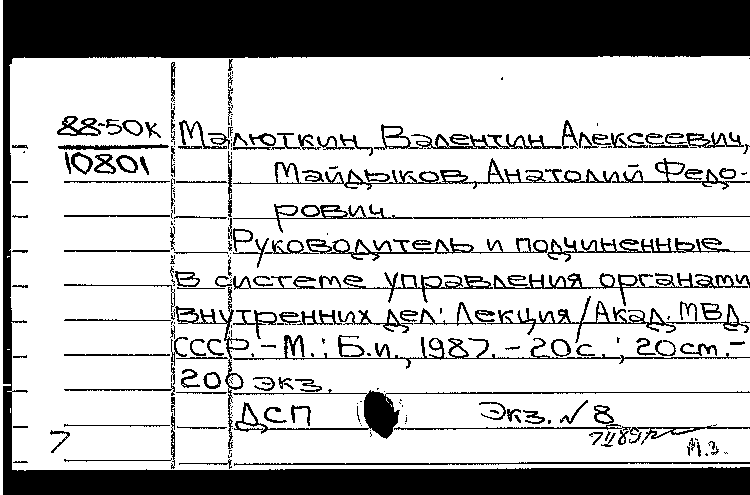 88-50к Малюткин, Валентин Алексеевич,
10801 Майдыков, Анатолий Федо-
рович.
Руководитель и подчиненные
в системе управления органами
внутренних дел: Лекция / Акад. МВД
СССР. – М.: Б.и., 1987. – 20 с.; 20 см. –
200 экз.
ДСП Экз. № 8
7
М.З.